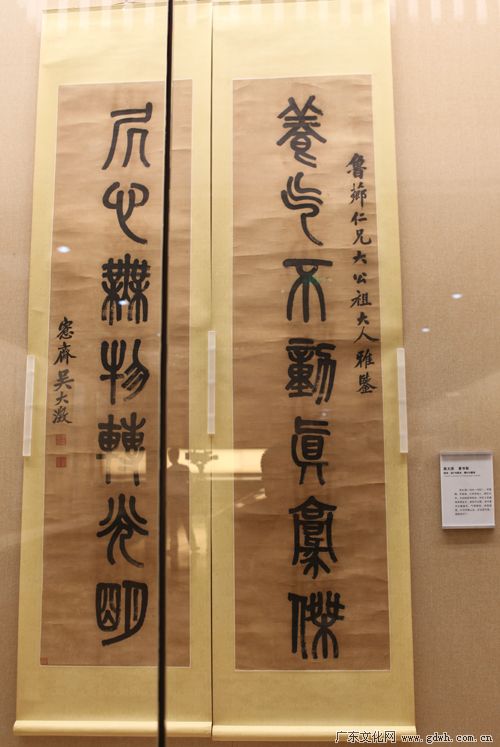 魯薌仁兄大公祖大人雅鑒
養气不動眞豪傑
居心無物轉光明
愙齋吳大澂
广东文化网 www.gdwh.com.cn